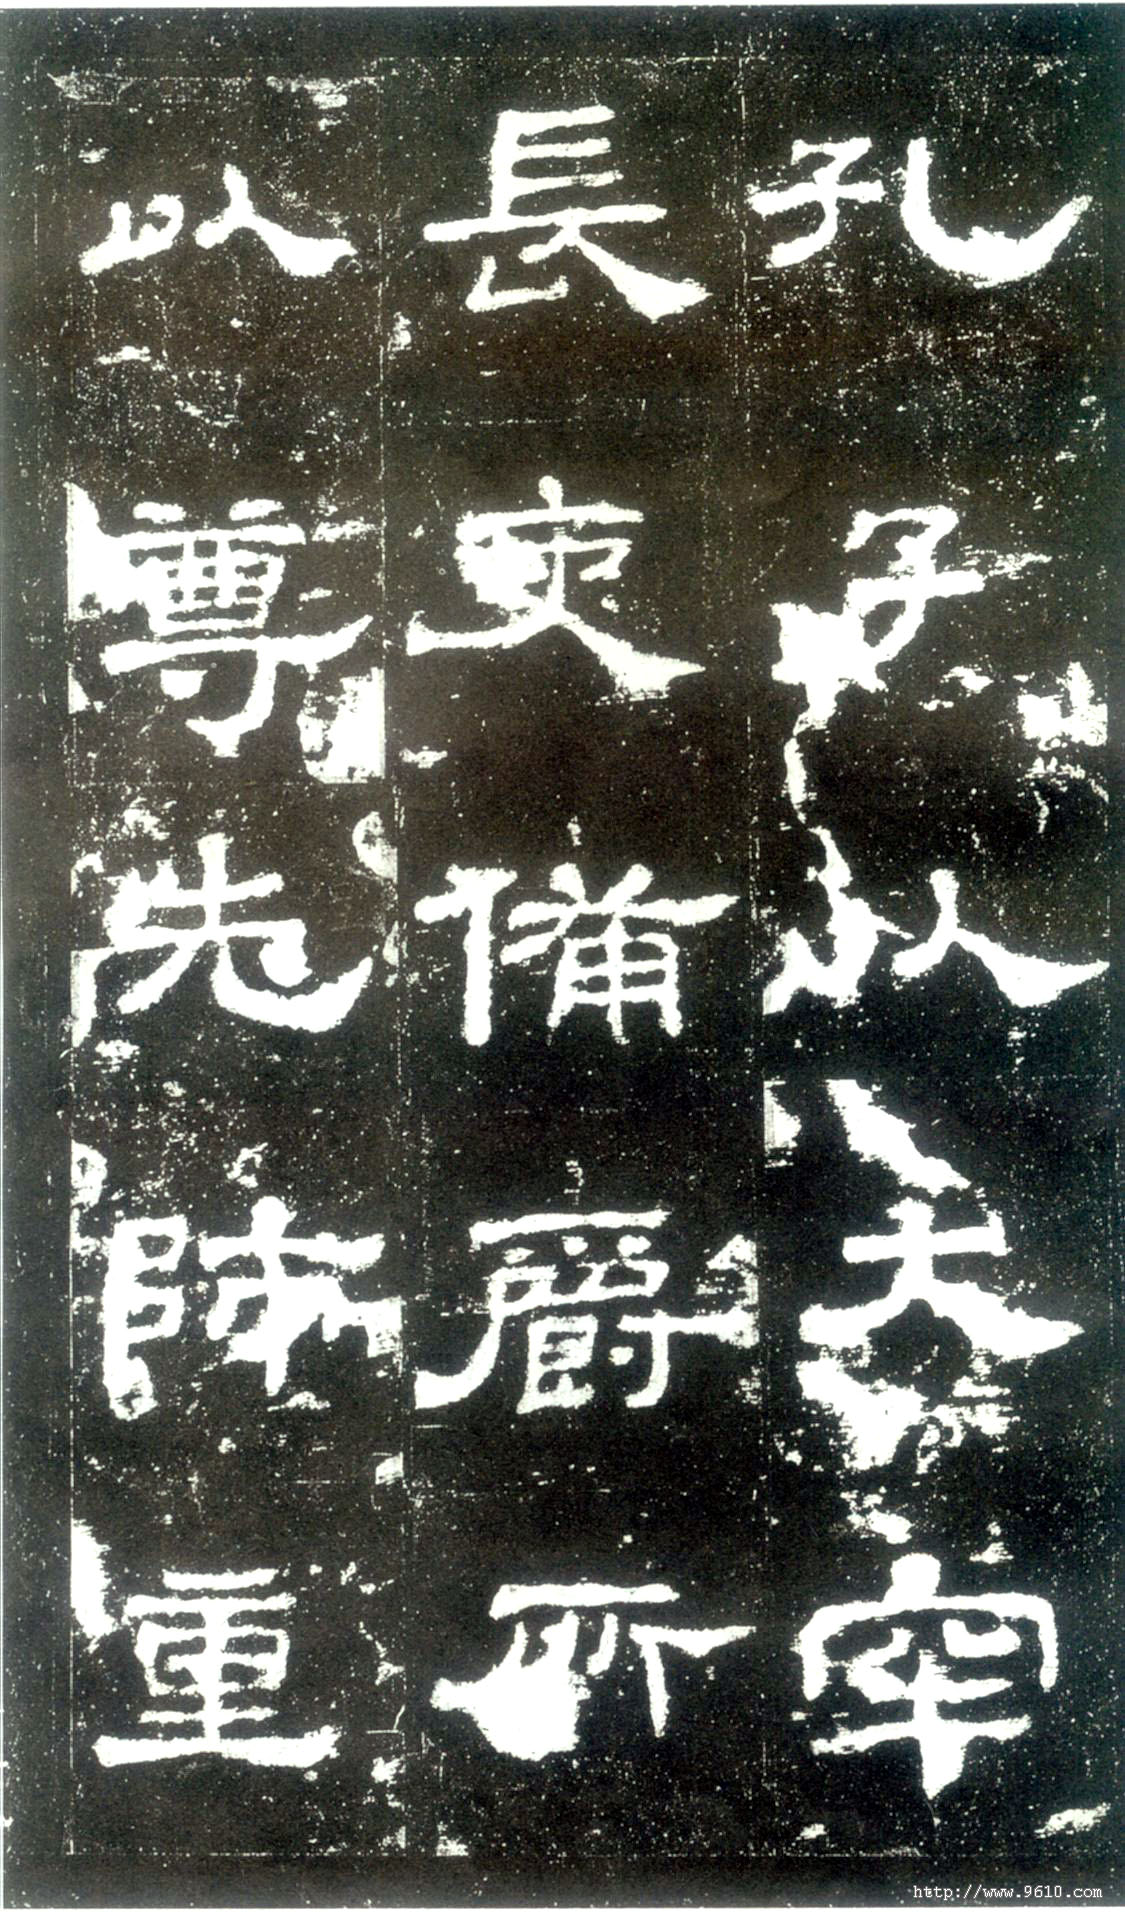 孔子以大牢
長吏備爵所
以尊先師重
http://www.9610.com